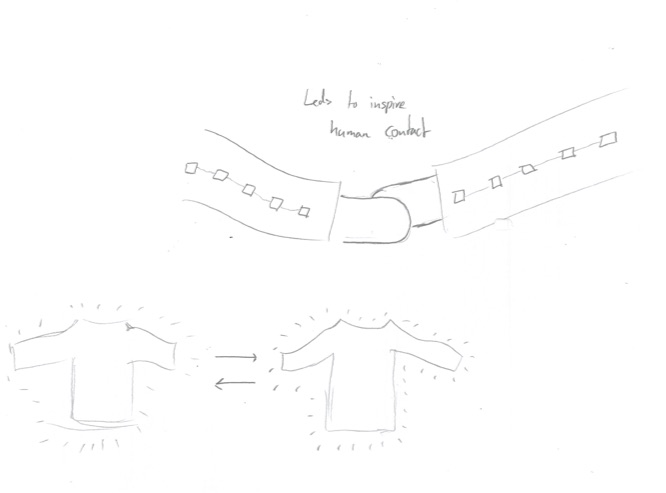 Leds to inspire
human contact